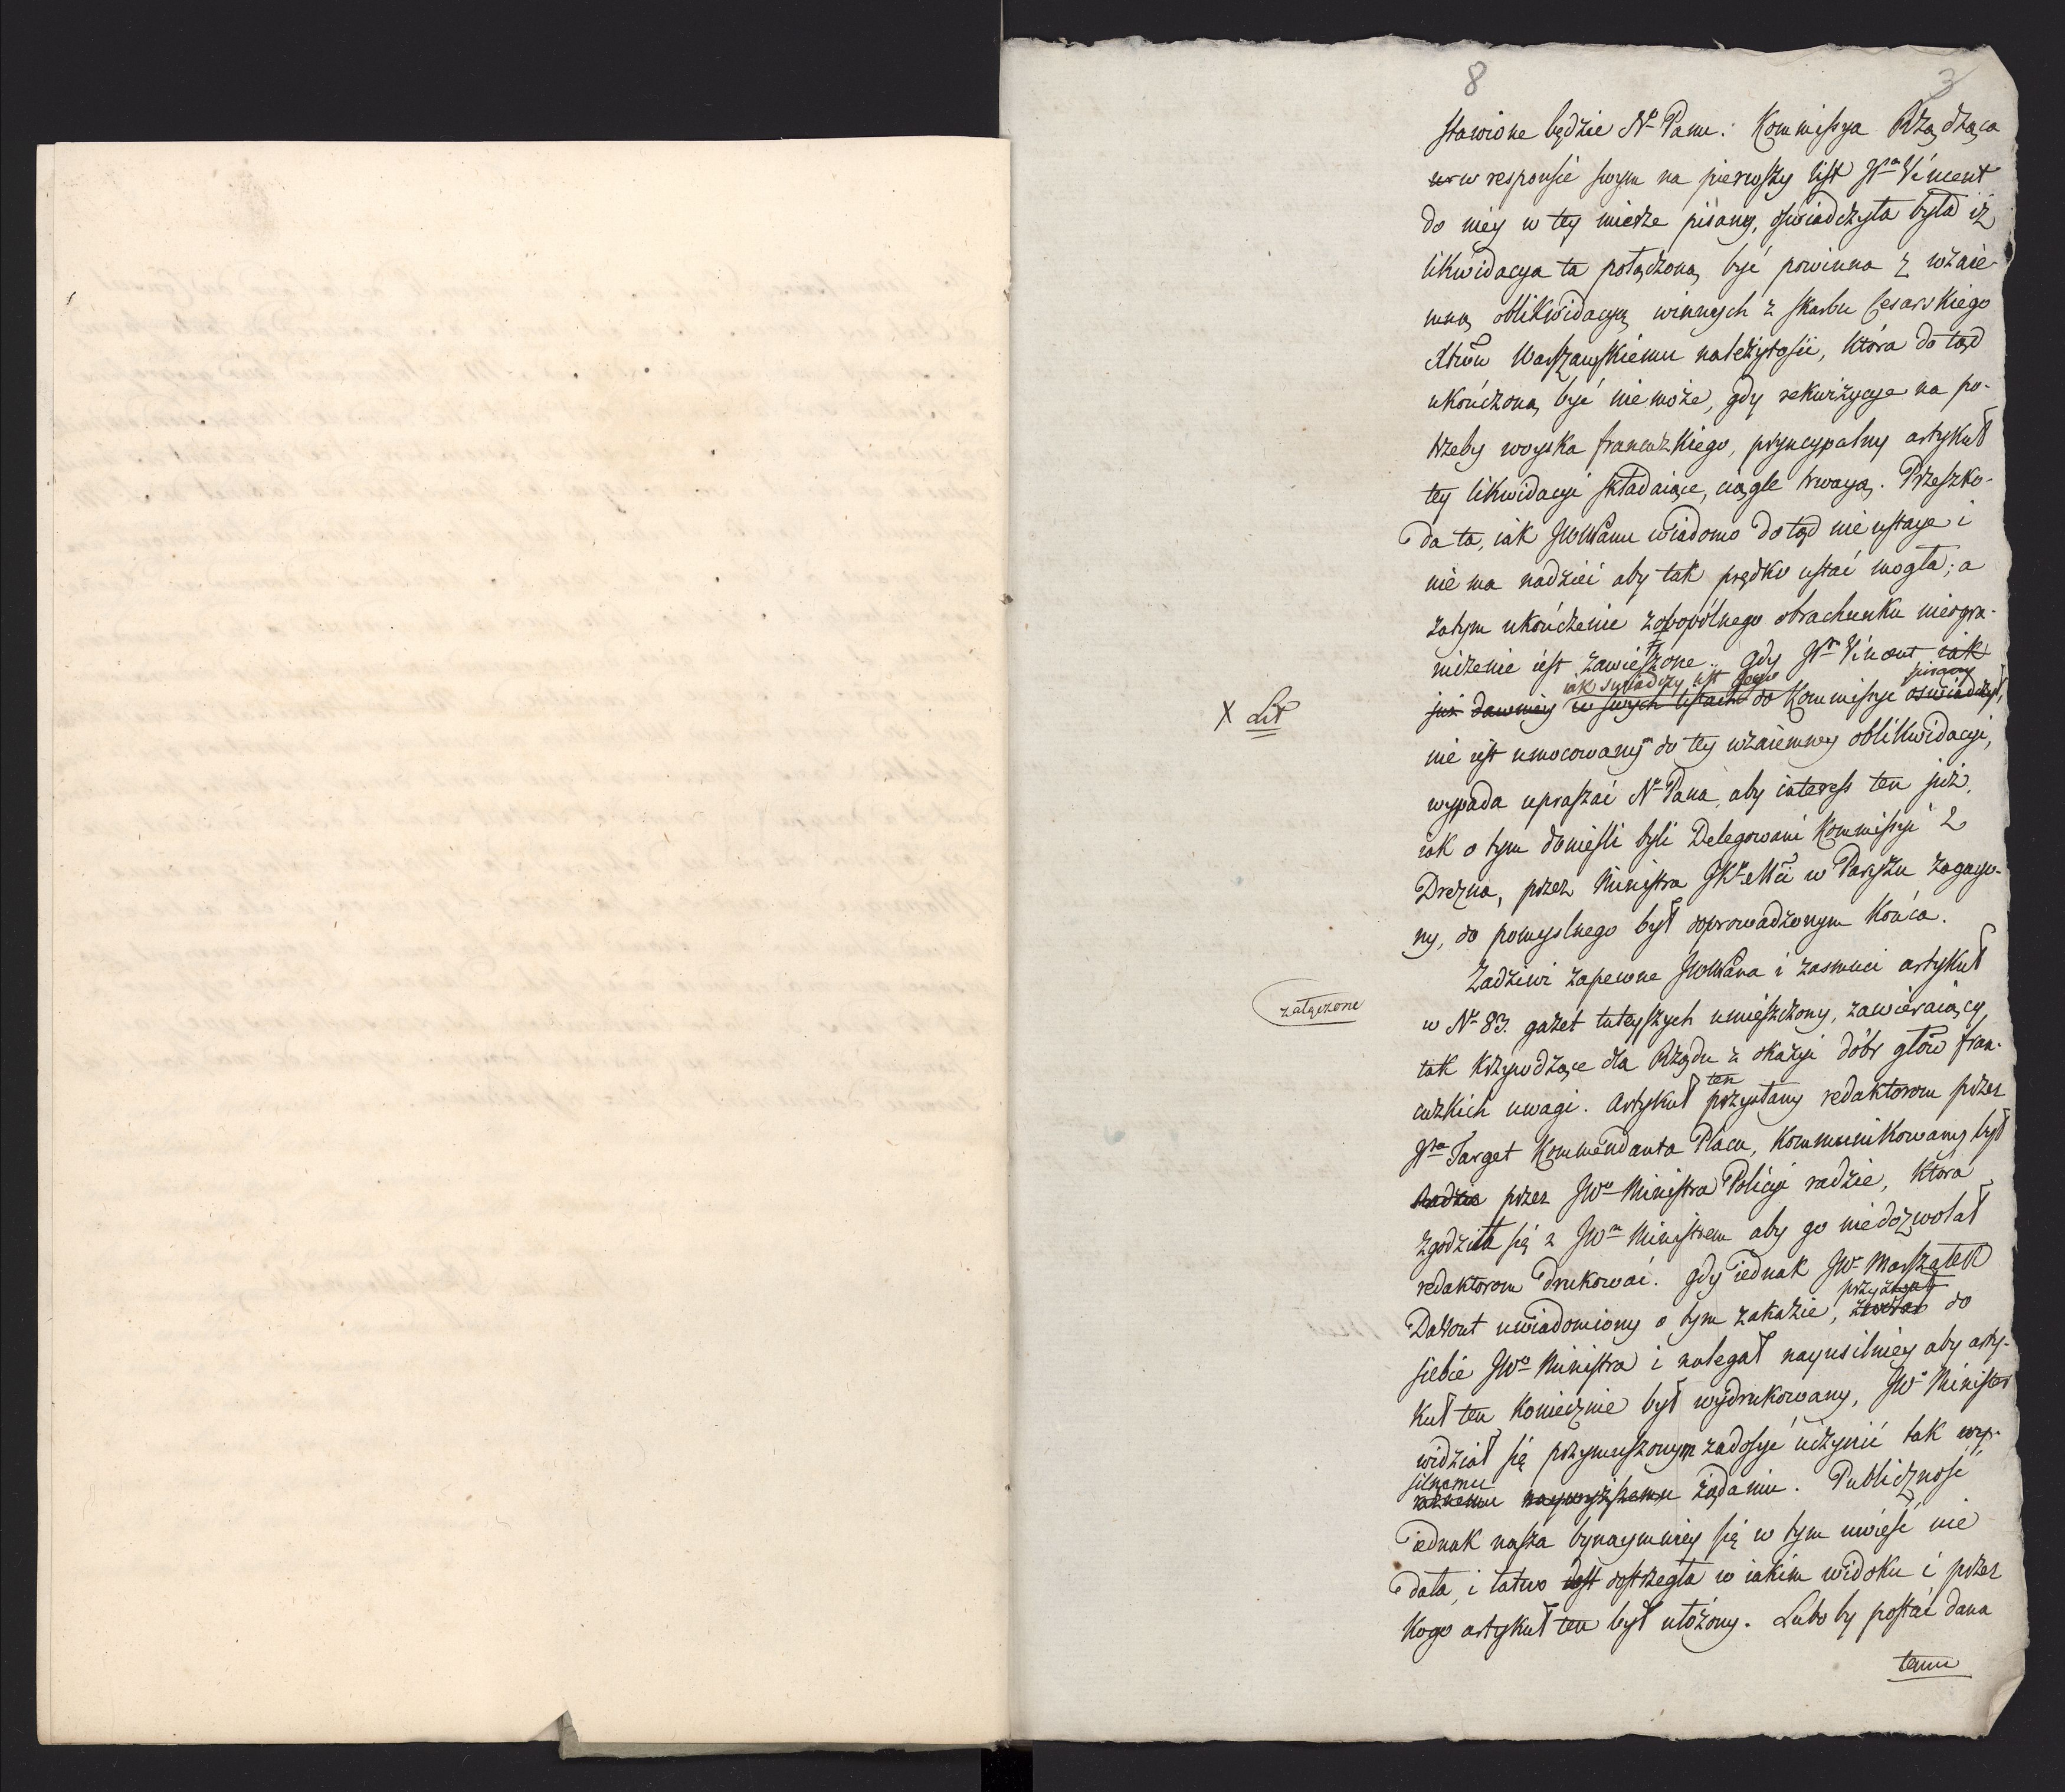 8 3
stawione będzie Nᵒ Panu. Kommissya Rządząca
w responsie swym na pierwszy list Jᵖᵃ Vincent
do niey w tey mierze pisany, oświadczyła była iż
likwidacya ta połączoną być powinna z wzaie-
mną oblikwidacyą winnych z skarbu Cesarskiego
Xtwu Warszawskiemu należytości, która do tąd
ukończoną być nie może, gdy rekwizycye na po-
trzeby woyska francuzkiego, pryncypalny artykuł
tey likwidacyi składaiące, ciągle trwaią. Przeszko-
da ta, iak JWWPanu wiadomo do tąd nie ustaie i
nie ma nadziei aby tak prędko ustać mogła; a
zatym ukończenie zobopólnego obrachunku nieogra-
niczenie iest zawieszone. Gdy Jᵖⁿ Vincent iak
iak świadczy list Jego pisany
X Lit
już dawniey w swych listach do Kommissyi oświadczył,
nie iest umocowany do tey wzaiemney oblikwidacyi,
wypada upraszać Nᵒ Pana, aby interess ten już,
iak o tym donieśli byli Delegowani Kommissyi z
Drezna, przez Ministra JKᵒMci w Paryżu zagaio-
ny, do pomyslnego był doprowadzonym końca.
Zadziwi zapewne JWWPana i zasmuci artykuł
załączone
w Nᵒ 83. gazet tuteyszych umieszczony, zawieraiący,
tak krzywdzące dla Rządu z okazyi dóbr głów fran-
cuzkich uwagi. Artykuł ten przysłany redaktorom przez
Jᵖᵃ Target Kommendanta Placu, kommunikowany był
Radzie przez JWᵒ Ministra Policyi radzie, która
zgodziła się z JWᵐ Ministrem aby go niedozwolał
redaktorom drukować. Gdy iednak JWᵒ Marszałek
przyzwał
Davout uwiadomiony o tym zakazie, do
siebie JWᵒ Ministra i nalegał nayusilniey aby arty-
kuł ten koniecznie był wydrukowany, JWᵒ Minister
widział się przymuszonym zadosyć uczynić tak wy-
silnemu
raźnemu naywyższemu żądaniu. Publiczność
iednak nasza bynaymniey się w tym uwieść nie
dała, i łatwo dost dostrzegła w iakim widoku i przez
kogo artykuł ten był ułożony. Lubo by postać dana
temu